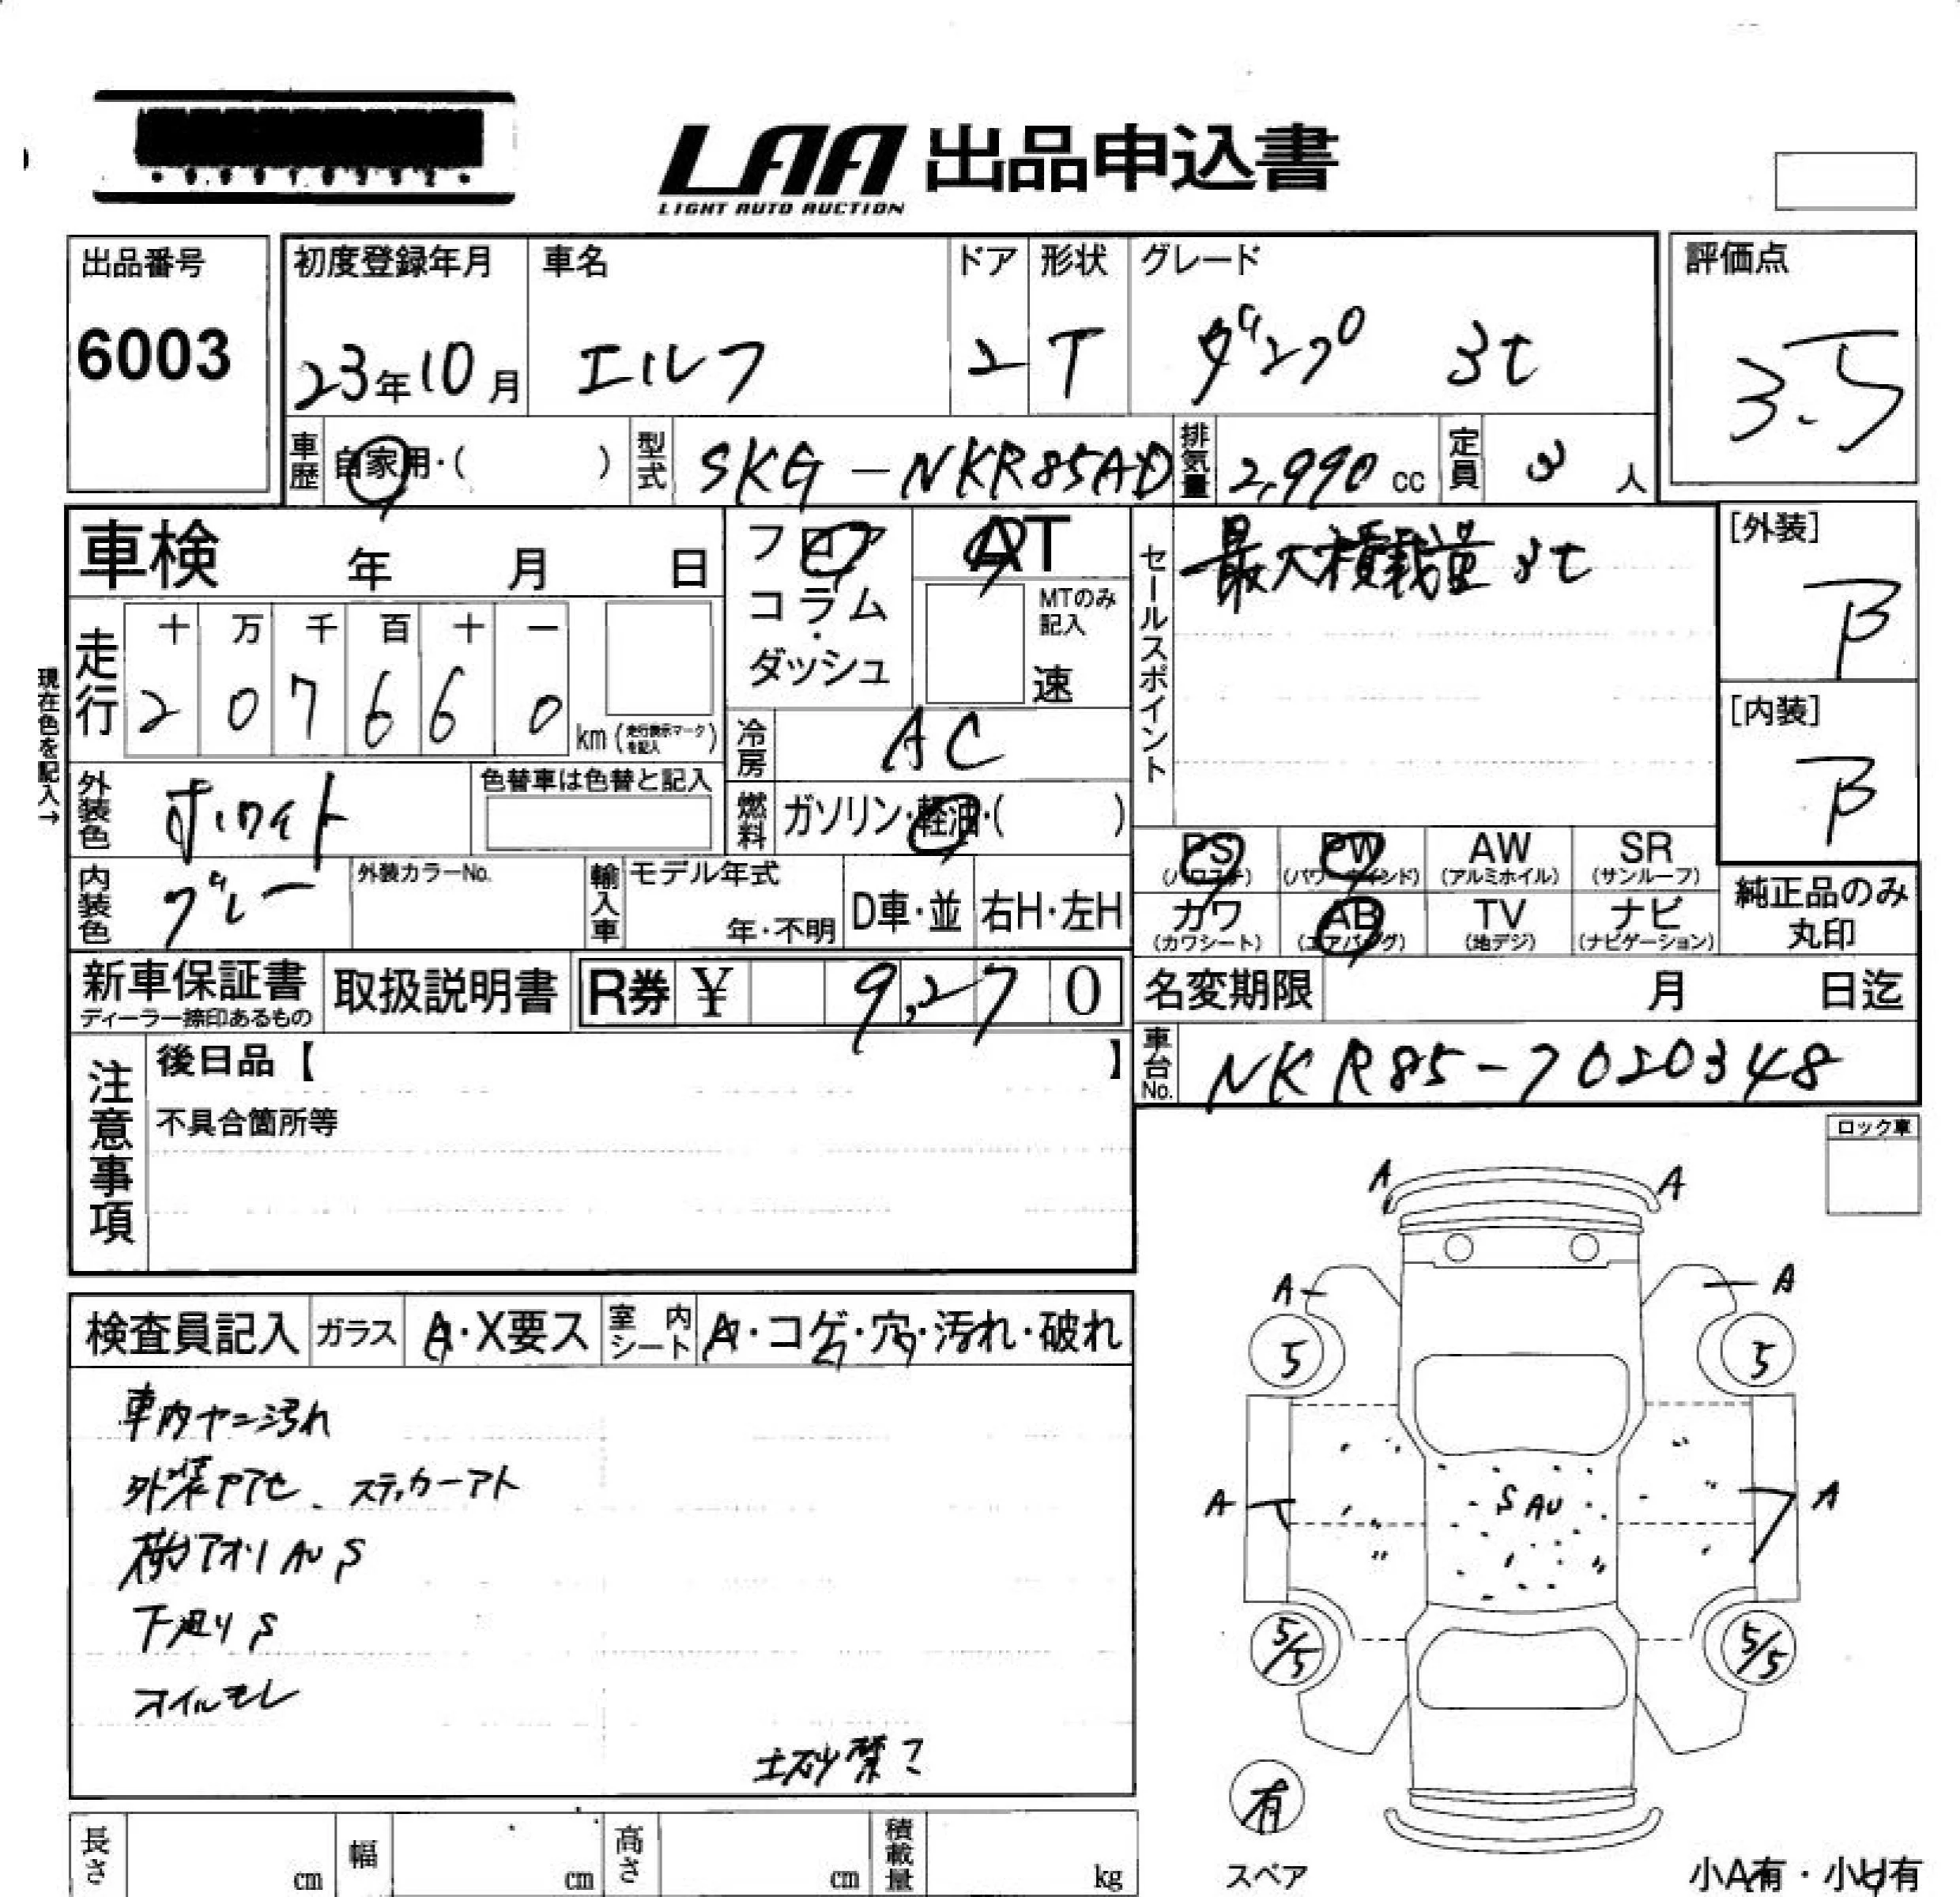 LAA 出品申込書
LIGHT AUTO AUCTION
出品番号
6003
初度登録年月
23年10月
車名
エルフ
ドア
2
形状
T
グレード
ダンプ 3t
評価点
3.5
車歴
自家用・( )
型式
SKG-NKR85AD
排気量
2,990 cc
定員
3 人
車検 年 月 日
フロア
コラム
・
ダッシュ
AT
MTのみ
記入
速
セールスポイント
最大積載量 3t
[外装]
B
[内装]
B
現在色を記入→
走行
十 万 千 百 十 一
2 0 7 6 6 0
km (走行表示マークを記入)
冷房
AC
外装色
ホワイト
色替車は色替と記入
燃料
ガソリン・軽油・( )
内装色
グレー
外装カラーNo.
輸入車
モデル年式
年・不明
D車・並
右H・左H
PS
(パワステ)
PW
(パワーウインド)
AW
(アルミホイル)
SR
(サンルーフ)
カワ
(カワシート)
AB
(エアバッグ)
TV
(地デジ)
ナビ
(ナビゲーション)
純正品のみ
丸印
新車保証書
ディーラー捺印あるもの
取扱説明書
R券 ¥ 9,270
名変期限 月 日迄
車台No.
NKR85-7020348
注意事項
後日品【 】
不具合箇所等
ロック車
検査員記入
ガラス
A・X要ス
室内シート
A・コゲ・穴・汚れ・破れ
車内ヤニ汚れ
外装ヤアセ、ステッカーアト
荷台アオリ AU S
下廻り S
オイルモレ
土砂禁ご
A A
A A
5 5
A A
S AU
5/5 5/5
有
スペア
小A有・小U有
長さ cm
幅 cm
高さ cm
積載量 kg